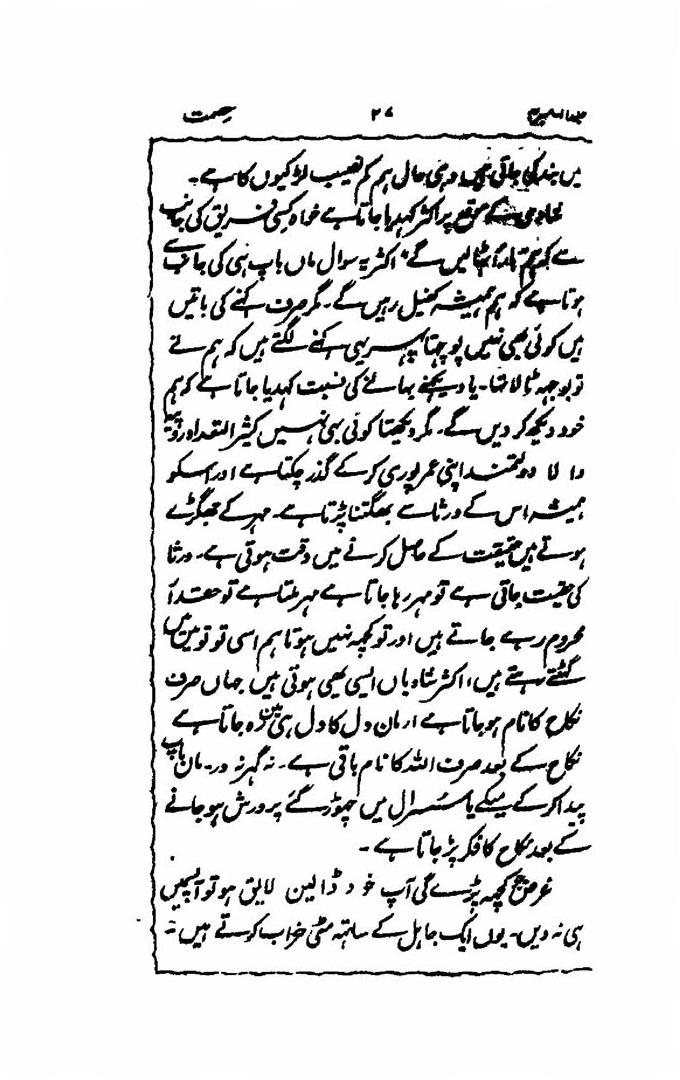 عصمت ۲۷ جلد
میں بند کی جاتی ہیں وہی حال ہم کم نصیب لڑکیوں کا ہے۔
شادی کے موقع پر اکثر کہدیا جاتا ہے خواہ کسی فریق کی جانب
سے کہ ہم بار اٹھالیں گے، اکثر یہ سوال ماں باپ ہی کی جانب سے
ہوتا ہے کہ ہم ہمیشہ کفیل رہیں گے۔ مگر صرف کہنے کی باتیں
ہیں کوئی بھی نہیں پوچھتا پہر یہی کہنے لگتے ہیں کہ ہم نے
تو بوجہہ ٹالا تھا۔ یا دیکھنے بھالنے کی نسبت کہدیا جاتا ہے کہ ہم
خود دیکھ کر دیں گے۔ مگر دیکھتا کوئی بہی نہیں کثیر التعداد روپیہ
والا دولتمند اپنی عمر پوری کر کے گذر چکتا ہے اور اسکو
ہمیشہ اس کے ورثا سے بھگتنا پڑتا ہے۔ مہر کے جھگڑے
ہوتے ہیں حقیقت کے حاصل کرنے میں دقت ہوتی ہے۔ ورثا
کی حقیت جاتی ہے تو مہر رہا جاتا ہے مہر ملتا ہے تو حقدار
محروم رہے جاتے ہیں اور تو کچہہ نہیں ہوتا ہم اسی تو تو میں میں
گھٹتے رہتے ہیں، اکثر شادیاں ایسی بھی ہوتی ہیں جہاں صرف
نکاح کا نام ہو جاتا ہے ارمان دل کا دل ہی میں رہ جاتا ہے
نکاح کے بعد صرف اللہ کا نام باقی ہے۔ نہ گہر نہ در۔ ماں باپ
پیدا کر کے میکے یا سسرال میں چھوڑ گئے پرورش ہو جانے
کے بعد نکاح کا فکر پڑ جاتا ہے۔
غرض کچہہ پڑے گی آپ خود ڈالیں لایق ہو تو آپسمیں
ہی نہ دیں۔ یوں ایک جاہل کے ساتہہ مٹی خراب کرتے ہیں نہ